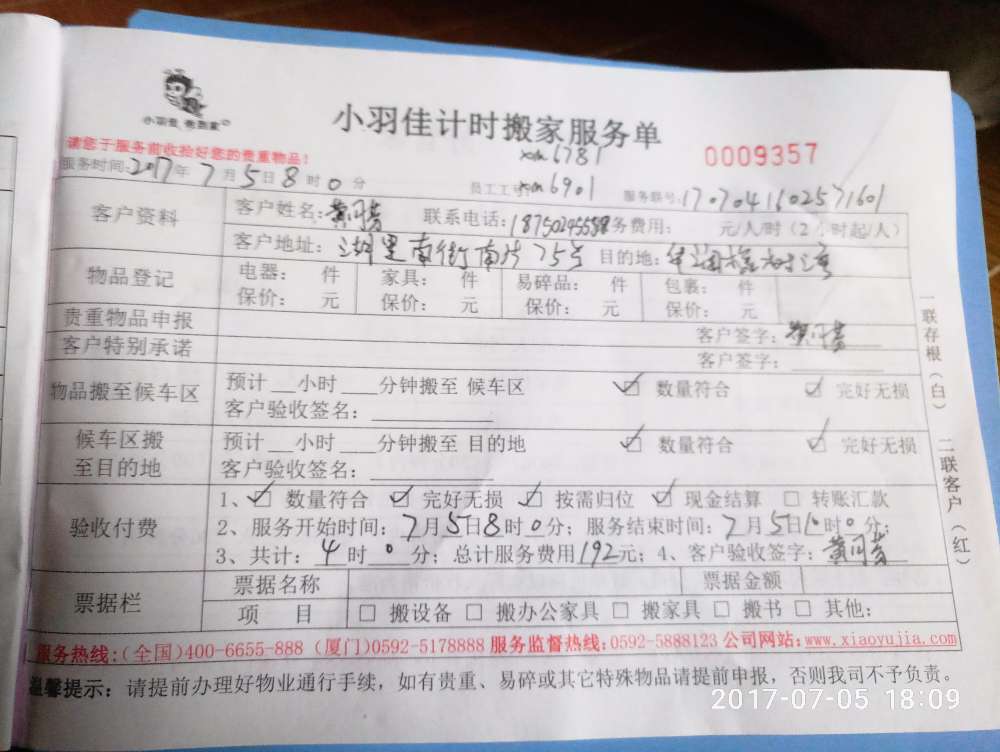 小羽佳计时搬家服务单
xm6781
0009357
请您于服务前收捡好您的贵重物品!
服务时间:2017年7月5日8时0分
员工工号:xm6901
服务联号:170704160257160
客户资料
客户姓名:
联系电话:
务费用: 元/人/时(2小时起/人)
客户地址:湖里南街南片75号 目的地:
物品登记
电器: 件 家具: 件 易碎品: 件 包裹: 件
保价: 元 保价: 元 保价: 元 保价: 元
贵重物品申报 客户签字:
客户特别承诺 客户签字:
物品搬至候车区
预计__小时___分钟搬至 候车区 ☑ 数量符合 ☑ 完好无损
客户验收签名:
候车区搬至目的地
预计__小时___分钟搬至 目的地 ☑ 数量符合 ☑ 完好无损
客户验收签名:
验收付费
1、☑ 数量符合 ☑ 完好无损 ☑ 按需归位 ☑ 现金结算 □ 转账汇款
2、服务开始时间:7月5日8时0分;服务结束时间:7月5日 时0分;
3、共计:4时0分;总计服务费用192元;4、客户验收签字:
票据栏
票据名称 票据金额
项 目 □ 搬设备 □ 搬办公家具 □ 搬家具 □ 搬书 □ 其他:
一联存根(白) 二联客户(红)
服务热线:(全国)400-6655-888 (厦门)0592-5178888 服务监督热线:0592-5888123 公司网站:www.xiaoyujia.com
温馨提示:请提前办理好物业通行手续,如有贵重、易碎或其它特殊物品请提前申报,否则我司不予负责。
2017-07-05 18:09